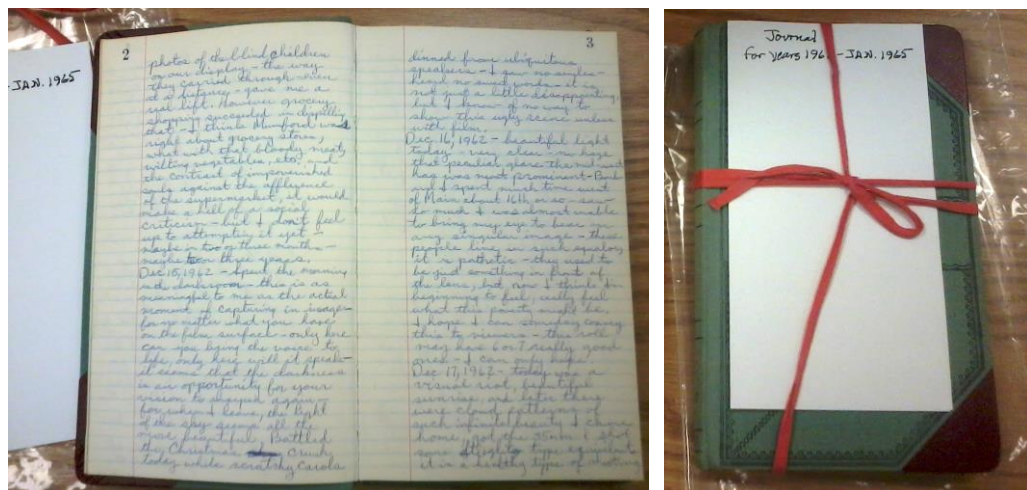 - JAN. 1965
2
photos of the blind children
on our display - the way
they carried through - even
at a distance - gave me a
real lift. However grocery
shopping succeeded in dispelling
that - I think Mumford was
right about grocery stores,
what with that bloody meat,
wilting vegetables, etc. and
the contrast of impoverished
souls against the affluence
of the supermarket, it would
make a hell of a social
criticism - but I don't feel
up to attempting it yet -
maybe in two or three months -
maybe in three years.
Dec 15, 1962 - Spent the morning
in the darkroom - this is as
meaningful to me as the actual
moment of capturing an image -
for no matter what you have
on the film surface - only here
can you bring the voice to
life, only here will it speak -
it seems that the darkness
is an opportunity for your
vision to
for when I leave, the light
of the sky seems all the
more beautiful. Battled
the Christmas crowds
today while scratchy carols
3
dinned from ubiquitous
speakers - I saw no smiles -
heard no kind words - it is
not just a little disappointing,
but I know of no way to
show this ugly scene unless
with film.
Dec. 16, 1962 - beautiful light
today - very clear - no haze
that peculiar glare the mid west
has was most prominent - Bud
and I spent much time west
of Main about 16th or so - saw
so much I was almost unable
to bring my eye to bear on
any singular image - these
people live in such squalor,
it is pathetic - they used to
be just something in front of
the lens, but, now I think I'm
beginning to feel, really feel
what this poverty might be.
I hope I can someday convey
this to viewers - this roll
may have 6 or 7 really good
ones - I can only hope!
Dec 17, 1962 - today was a
visual riot, beautiful
sunrise, and later there
were cloud patterns of
such infinite beauty I
home, got the 35mm & shot
some type equivalents
it is a healthy type of
Journal
for years 196 - JAN. 1965